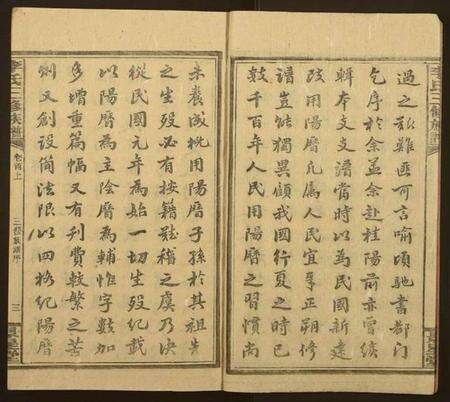 過之艱難匪可言喻頃馳書都門
乞序於余並余赴桂陽前亦曾續
輯本支支譜當時以為民國新建
改用陽曆凡屬人民宜享正朔修
譜豈能獨異顧我國行夏之時已
數千百年人民用陽曆之習慣尚
未養成概用陽曆子孫於其祖先
之生歿必有按籍難稽之虞乃決
從民國元年為始一切生歿紀載
以陽曆為主陰曆為輔惟字數加
多增重篇幅又有刊費較繁之苦
爰又創設簡法限以四格紀陽曆
李氏三修族譜
卷首上
三修族譜序
三